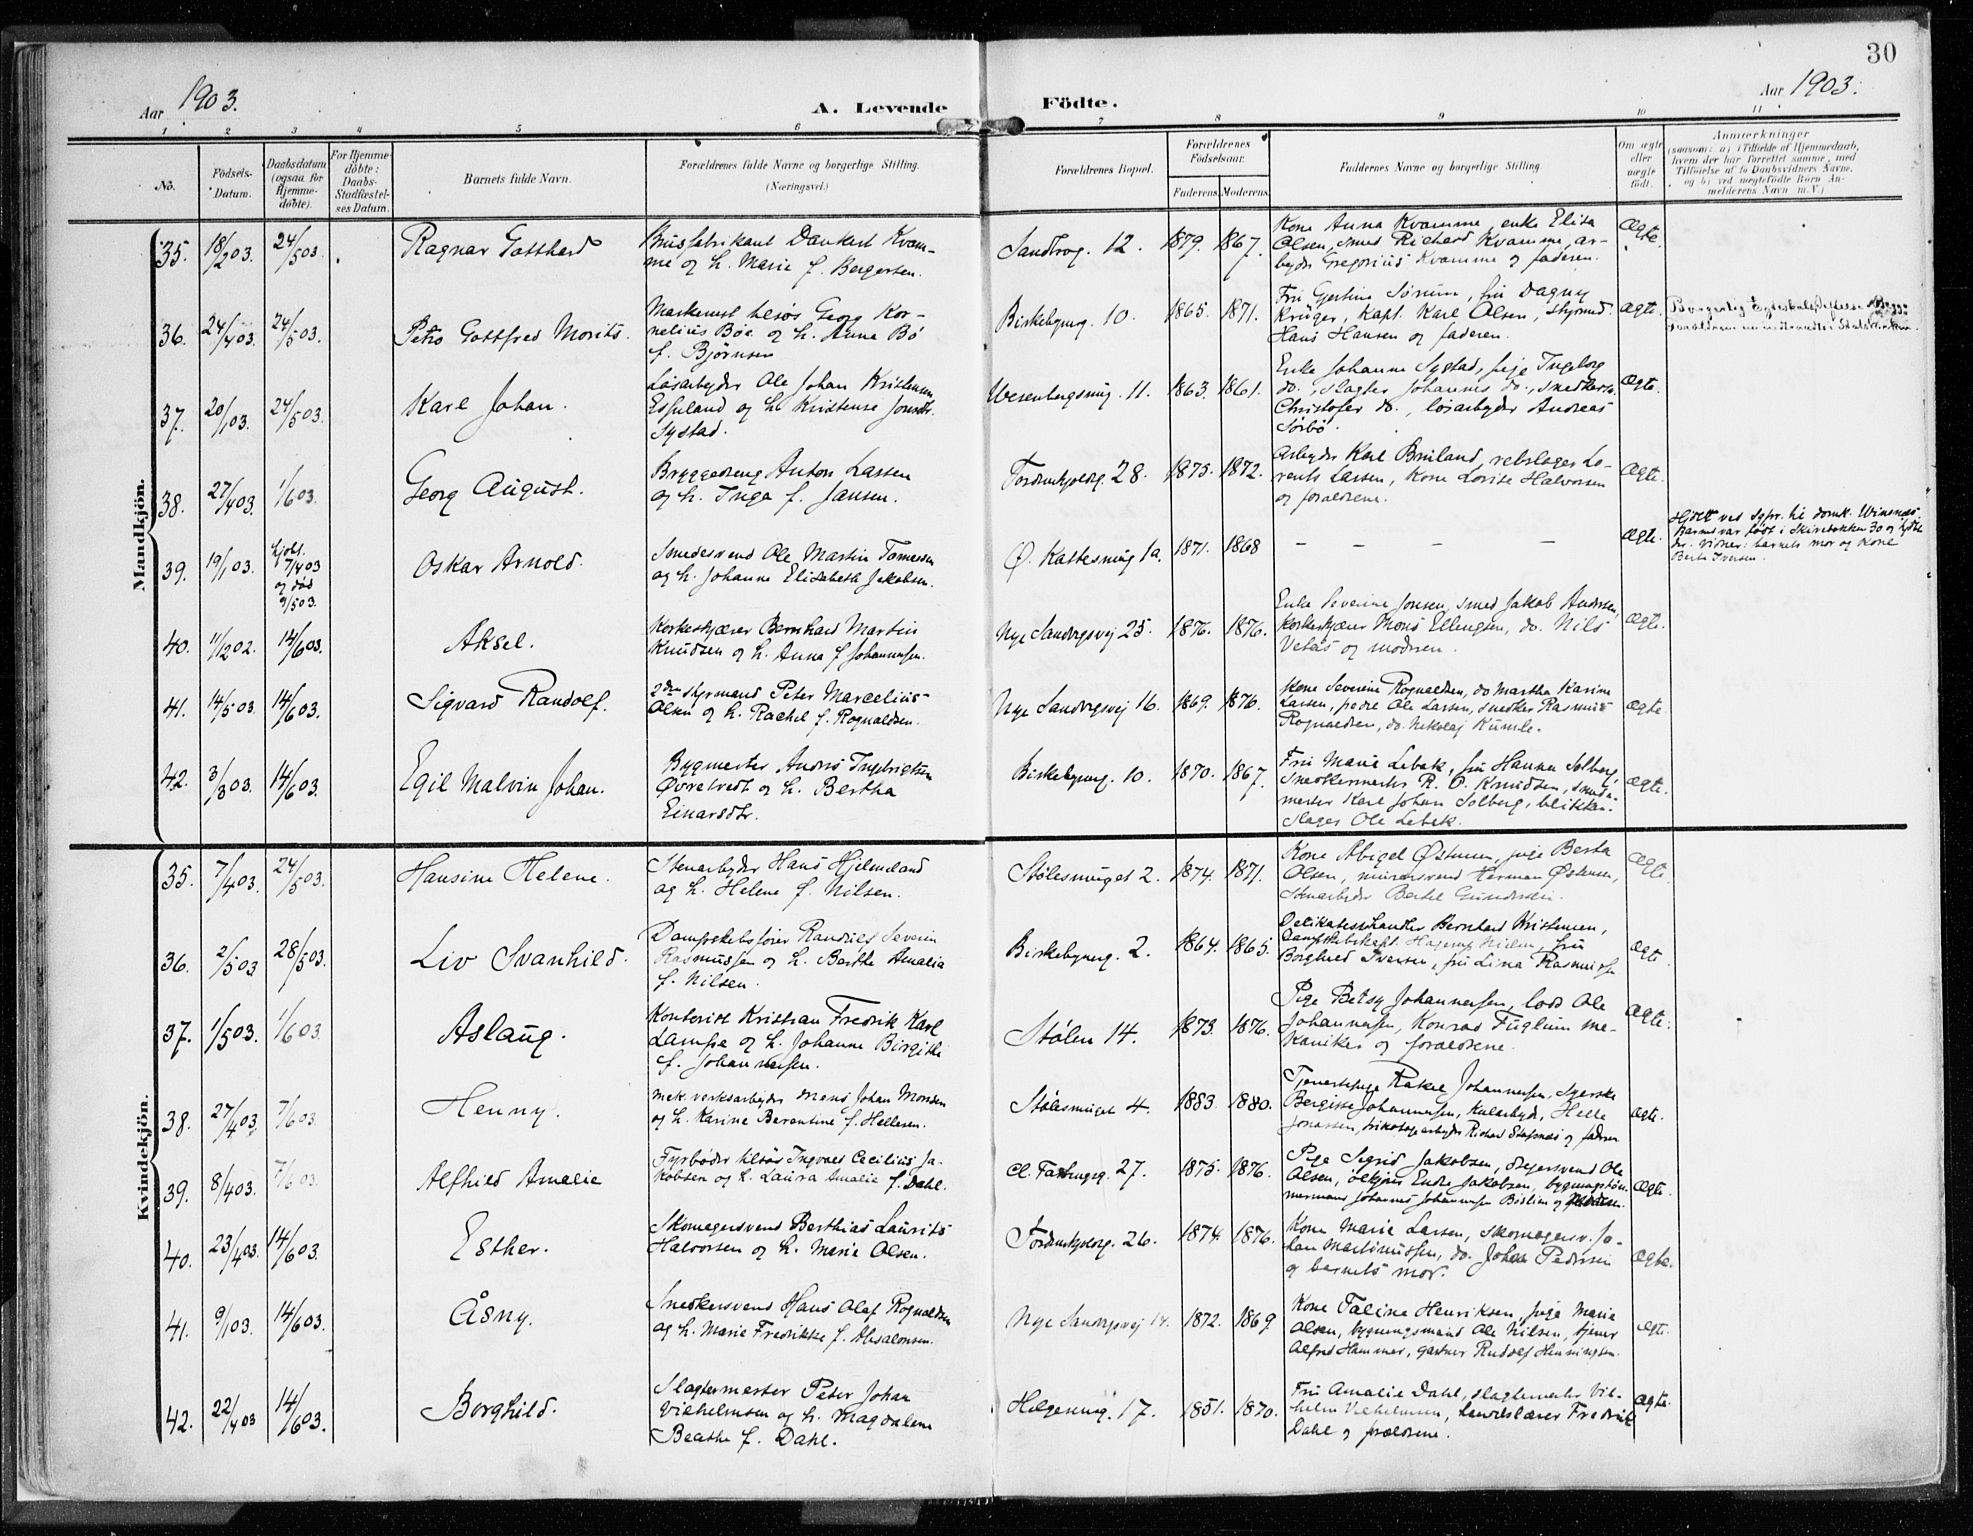 30
Aar 1903.
A. Levende Födte.
Aar 1903.
1 2 3 4 5 6 7 8 9 10 11
No.
Födsels-Datum.
Daabsdatum (ogsaa for Hjemme-döbte).
For Hjemme-döbte: Daabs-Stadfæstel-ses Datum.
Barnets fulde Navn.
Forældrenes fulde Navne og borgerlige Stilling.
(Næringsvei.)
Forældrenes Bopæl.
Forældrenes Födselsaar.
Faderens. Moderens.
Faddernes Navne og borgerlige Stilling.
Om ægte eller uægte født.
Anmærkninger
(saasom: a) i Tilfælde af Hjemmedaab,
hvem der har forrettet samme, med
Tilföielse af to Daabsvidners Navne,
og b) ved uegtefödte Börn An-
melderens Navn m. V.)
Mandkjön.
35. 18/2 03. 24/5 03. Ragnar Gotthard
Brusfabrikant Dankert Kvam-
me og h. Marie f. Bergersen.
Sandbrog. 12. 1879. 1867.
Kone Anna Kvamme, enke Elisa
Olsen, smed Richard Kvamme, ar-
beyder Gregorius Kvamme og faderen.
Ægte.
36. 24/4 03. 24/5 03. Petro Gottfred Morits.
Georg Kor-
nelius Bøe og h. Anna Bø
f. Bjørnsen
Birkebynerg. 10. 1865. 1871.
Fru Gjertine Sörum, fru Dagny
Krüger, kapt. Karl Olsen, styrmd.
Hans Hansen og faderen.
Ægte.
Borgerlig Egteskab
37. 20/1 03. 24/5 03. Karl Johan.
Løsarbeyder Ole Johan Kristensen
og h. Kristense
Systad.
Wesenbergsmug. 11. 1863. 1861.
Enke Johanne Systad, pige Ingeborg
do., slagter Johannes do., snedkersv.
Christofer do., løsarbeyder Andreas
Sørbø.
Ægte.
38. 27/4 03. 1/6 03. Georg August.
Bryggedreng Anton Larsen
og h. Inga f. Jansen.
28. 1875. 1872.
Arbeyder Karl Bruland, rebslager Lo-
rents Larsen, kone Lovise Halvorsen
og forældrene.
Ægte.
39. 19/1 03. hjdt. 7/4 03 og død 9/5 03. Oskar Arnold.
Smedesvend Ole Martin Tomesen
og h. Johanne Elisabeth Jakobsen.
Ø. Kattesmug 1a. 1871. 1868
— — — —
Ægte.
Hjdt ved sgpr. til domk. Winsnes.
Barnet var født i Skivebakken 30 og
der. Vidner: barnets mor og kone
Berta Iversen.
40. 11/12 02. 14/6 03. Aksel.
Korkeskjærer Bernhard Martin
Knudsen og h. Anna f. Johannessen.
Nye Sandvigsvej 25. 1876. 1876.
Enke Severine Jonsen, smed Jakob Andersen,
korkeskjærer Mons Ellingsen, do. Nils
Vetås og moderen.
Ægte.
41. 14/5 03. 14/6 03. Sigvard Randolf.
2den styrmand Peter Marcelius
Olsen og h. Rachel f. Rognaldsen.
Nye Sandvigsvej 16. 1869. 1876.
Kone Severine Rognaldsen, do Martha Karine
Larsen, Ole Larsen, snedker Rasmus
Rognaldsen, do. Nikolaj Kumle.
Ægte
42. 3/3 03. 14/6 03. Egil Malvin Johan.
Bygmester Andrs Ingebrigtsen
Øvretvedt og h. Bertha
Einarsdtr.
Birkebynerg. 10. 1870. 1867.
Fru Marie Lebek, fru Hanna Solberg,
snedkermester R. O. Knudsen, smed-
mester Karl Johan Solberg, blikken-
slager Ole Lebek.
Ægte.
Kvindekjön.
35. 7/4 03. 24/5 03. Hansine Helene.
Stenarbeyder Hans Hjelmeland
og h. Helene f. Nilsen.
Stølesmuget 2. 1874. 1871.
Kone Abigel Østensen, pige Berta
Olsen, murersvend Herman Østensen,
stenarbeyder Bertel Gundersen.
Ægte.
36. 2/5 03 28/5 03. Liv Svanhild.
Dampskibsfører Severin
Rasmussen og h. Berthe Amalia
f. Nilsen.
Birkebynerg. 2. 1864. 1865.
Delikatessehandler Bernhard Kristensen,
dampskibskapt. Nilsen, fru
Borghild Iversen, fru Lina Rasmussen
Ægte
37. 1/5 03. 1/6 03 Aslaug.
Kontorist Kristian Fredrik Karl
Lampe og h. Johanne Birgithe
f. Johannessen.
Stølen 14. 1873. 1876.
Pige Betsy Johannessen, lods Ole
Johannessen, Konrad Fuglum me-
kaniker og forældrene.
Ægte.
38. 27/4 03. 7/6 03. Henny.
Mek. verksarbeyder Mons Johan Monsen
og h. Karine Berentine f. Hellesen.
Stølesmuget 4. 1883. 1880.
Tjenestepige Rakel Johannessen, syerske
Bergitte Johannessen, kularbeyd. Helle
Jonassen, trikotagearbeyder Richard og faderen
Ægte.
39. 8/4 03. 7/6 03. Alfhild Amalie
Fyrbøder tilsøs Ingvald Cecilius Ja-
kobsen og h. Laura Amalie f. Dahl.
27. 1875. 1876.
Pige Sigrid Jakobsen, dreiersvend Ole
Olsen, Endre Jakobsen, bygningstöm-
mermand Johannes Johannessen og
Ægte.
40. 23/4 03. 14/6 03. Esther.
Skomagersvend Berthias Laurits
Halvorsen og h. Marie Olsen.
26. 1874 1876.
Kone Marie Larsen, skomagersv. Jo-
han Martinussen, do. Johan Pedersen
og barnets mor.
Ægte.
41. 9/1 03. 14/6 03. Åsny.
Snedkersvend Hans Olaf Rognaldsen
og h. Marie Fredrikke f. Absalonsen.
Nye Sandvigsvej 14. 1872. 1869
Kone Taline Henriksen, pige Marie
Olsen, bygningsmand Ole Nilsen, tjener
Alfred Hammer, gartner Rudolf Henningsen.
Ægte.
42. 22/4 03 14/6 03. Borghild.
Slagtermester Peter Johan
Vilhelmsen og h. Magdalena
Beathe f. Dahl.
Helgesmug. 17. 1851. 1870.
Fru Amalie Dahl, slagtermester Vil-
helm Vilhelmsen, Fredrik
Dahl og forældrene.
Ægte.